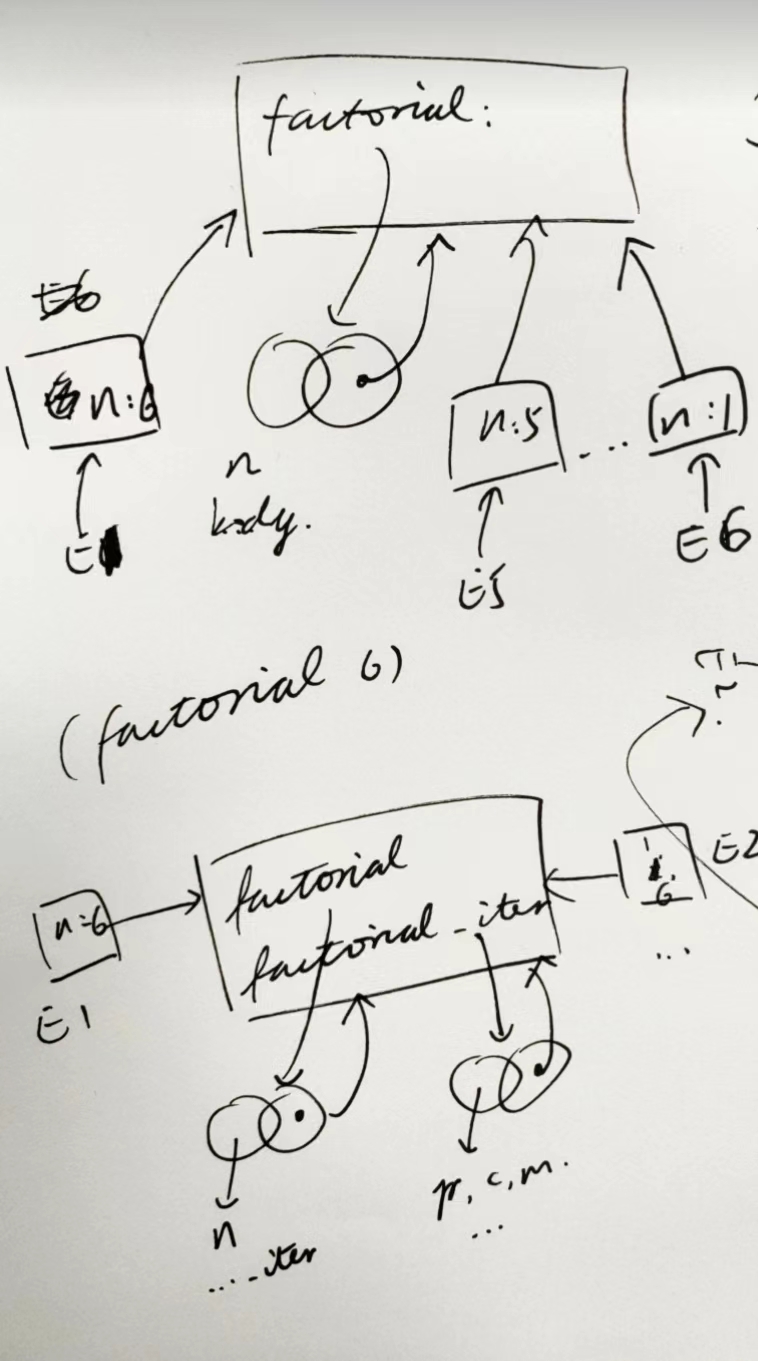 factorial:
n:6
n:5
...
n:1
n
body.
E5
E6
(factorial 6)
factorial
factorial_iter
n=6
E1
1
1.
6
E2
...
n
...._iter
p, c, m.
...